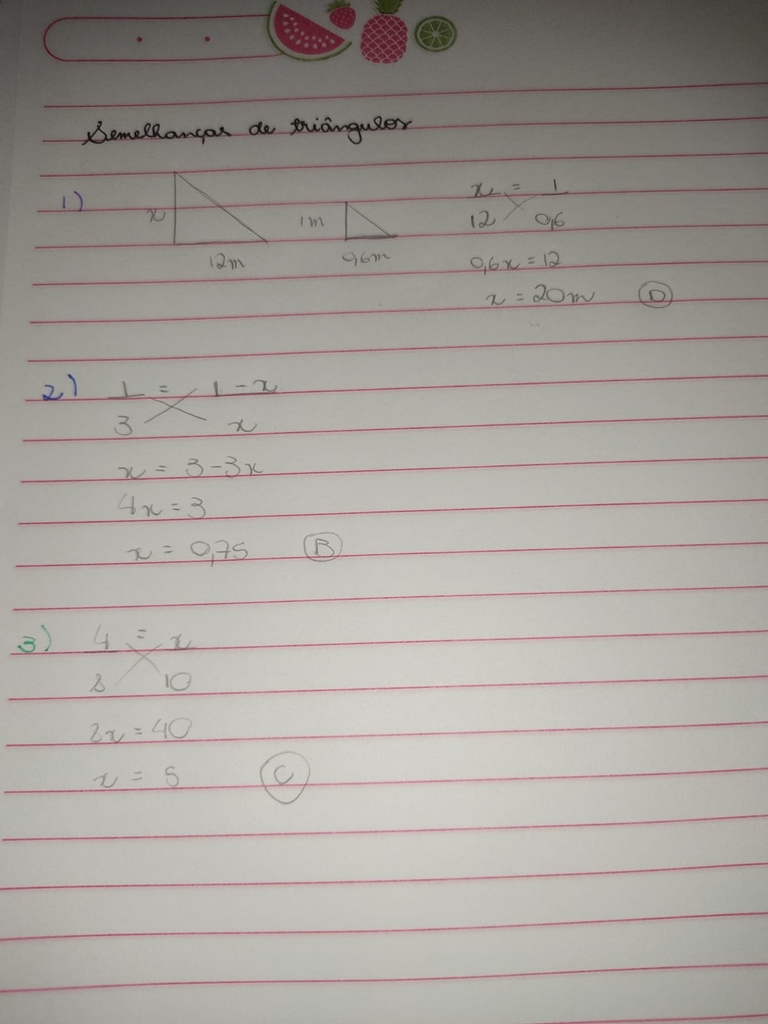 Semelhanças de triângulos
1)
x
12m
1m
0,6m
x = 1
12 0,6
0,6x = 12
x = 20m D
2) 1 = 1 - x
3 x
x = 3 - 3x
4x = 3
x = 0,75 B
3) 4 = x
8 10
8x = 40
x = 5 C